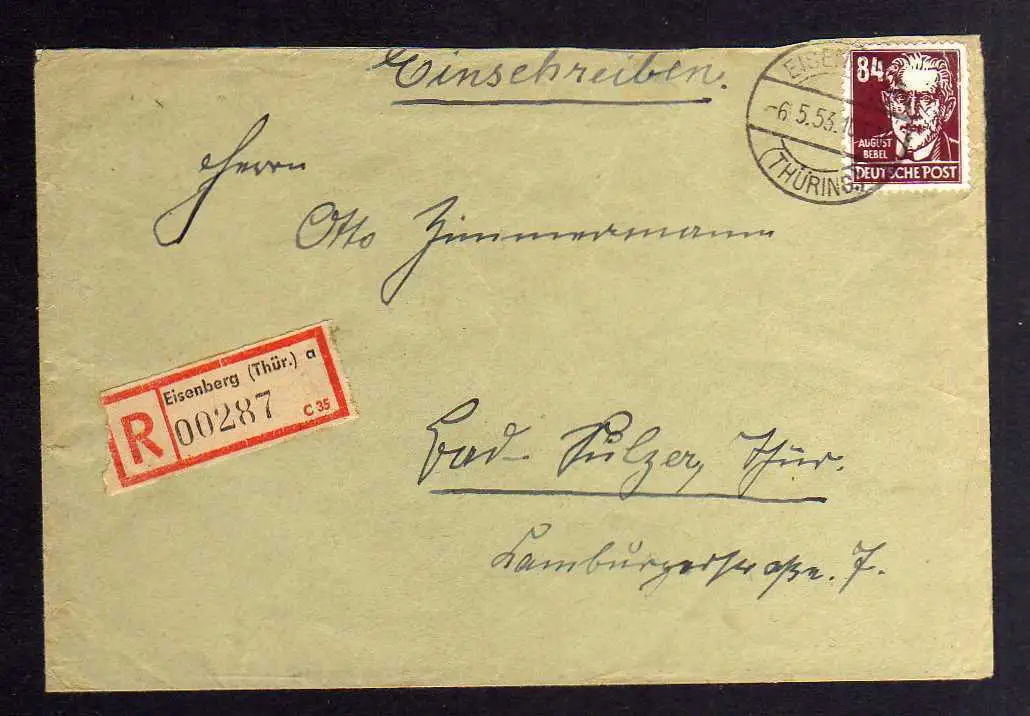 Einschreiben.
EISEN
-6.5.53.10
(THÜRING.)
84
AUGUST
BEBEL
DEUTSCHE POST
Herrn
Otto Zimmermann
R
Eisenberg (Thür.) a
00287
C 35
Bad Sulza, Thür.
Camburgerstraße. 7.